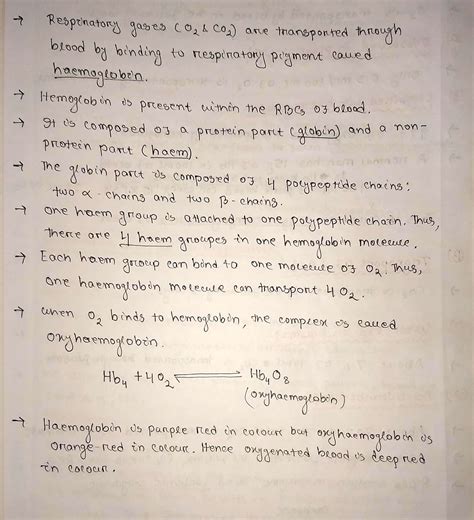 → Respiratory gases (O2 & CO2) are transported through
blood by binding to respiratory pigment called
haemoglobin.
→ Hemoglobin is present within the RBCs of blood.
→ It is composed of a protein part (globin) and a non-
protein part (haem).
→ The globin part is composed of 4 polypeptide chains:
two α-chains and two β-chains.
→ One haem group is attached to one polypeptide chain. Thus,
there are 4 haem groupes in one hemoglobin molecule.
→ Each haem group can bind to one molecule of O2. Thus,
one haemoglobin molecule can transport 4O2.
→ When O2 binds to hemoglobin, the complex is called
oxyhaemoglobin.
Hb4 + 4O2 ⇌ Hb4O8
(oxyhaemoglobin)
→ Haemoglobin is purple red in colour but oxyhaemoglobin is
orange-red in colour. Hence oxygenated blood is deep red
in colour.